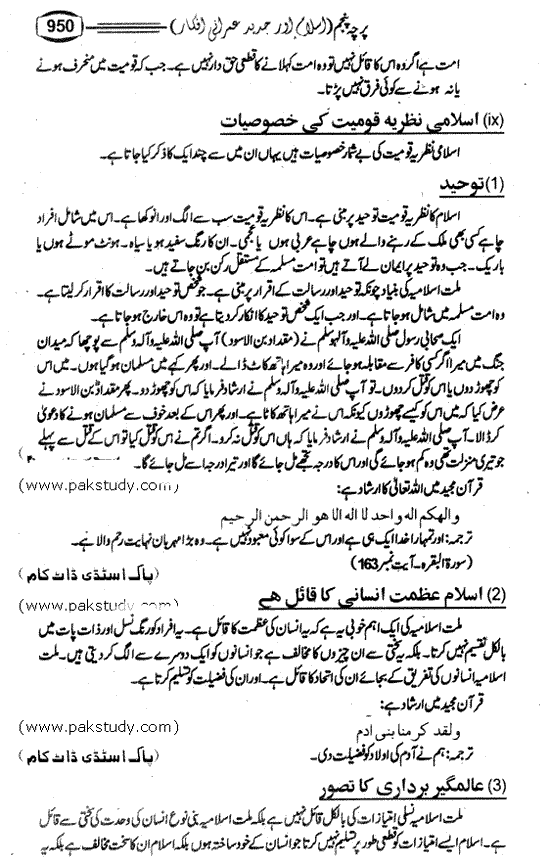 پرچہ پنجم (اسلام اور جدید عمرانی افکار)
950
امت ہے اگر وہ اس کا قائل نہیں تو وہ امت کہلانے کا قطعی حق دار نہیں ہے۔ جب کہ قومیت میں منحرف ہونے
یا نہ ہونے سے کوئی فرق نہیں پڑتا۔
(ix) اسلامی نظریہ قومیت کی خصوصیات
اسلامی نظریہ قومیت کی بے شمار خصوصیات ہیں یہاں ان میں سے چند ایک کا ذکر کیا جاتا ہے۔
(1) توحید
اسلام کا نظریہ قومیت توحید پر مبنی ہے۔ اس کا نظریہ قومیت سب سے الگ اور انوکھا ہے۔ اس میں شامل افراد
چاہے کسی بھی ملک کے رہنے والے ہوں چاہے عربی ہوں یا عجمی۔ ان کا رنگ سفید ہو یا سیاہ۔ ہونٹ موٹے ہوں یا
باریک۔ جب وہ توحید پر ایمان لے آتے ہیں تو امت مسلمہ کے مستقل رکن بن جاتے ہیں۔
ملت اسلامیہ کی بنیاد چونکہ توحید اور رسالت کے اقرار پر مبنی ہے۔ جو شخص توحید اور رسالت کا اقرار کر لیتا ہے۔
وہ امت مسلمہ میں شامل ہو جاتا ہے۔ اور جب ایک شخص توحید کا انکار کر دیتا ہے تو وہ اس سے خارج ہو جاتا ہے۔
ایک صحابی رسول صلی اللہ علیہ وآلہ وسلم نے (مقداد بن الاسود) آپ صلی اللہ علیہ وآلہ وسلم سے پوچھا کہ میدان
جنگ میں میرا اگر کسی کافر سے مقابلہ ہو جائے اور وہ میرا ہاتھ کاٹ ڈالے۔ اور پھر کہے میں مسلمان ہو گیا ہوں۔ میں اس
کو چھوڑ دوں یا اس کو قتل کر دوں۔ تو آپ صلی اللہ علیہ وآلہ وسلم نے ارشاد فرمایا کہ اس کو چھوڑ دو۔ پھر مقدادؓ بن الاسود نے
عرض کیا کہ میں اس کو کیسے چھوڑوں کیونکہ اس نے میرا ہاتھ کاٹا ہے۔ اور پھر اس کے بعد خوف سے مسلمان ہونے کا دعویٰ
کر ڈالا۔ آپ صلی اللہ علیہ وآلہ وسلم نے ارشاد فرمایا کہ ہاں اس کو قتل نہ کرو۔ اگر تم نے اس کو قتل کیا تو اس کے قتل سے پہلے
جو تیری منزلت تھی وہ کم ہو جائے گی اور اس کا درجہ تجھے مل جائے گا اور تیرا درجہ اسے مل جائے گا۔
قرآن مجید میں اللہ تعالیٰ کا ارشاد ہے:
(www.pakstudy.com)
والهكم اله واحد لا اله الا هو الرحمن الرحيم
ترجمہ: اور تمہارا خدا ایک ہی ہے اور اس کے سوا کوئی معبود نہیں ہے۔ وہ بڑا مہربان نہایت رحم والا ہے۔
(سورۃ البقرہ۔ آیت نمبر 163)
(پاک اسٹڈی ڈاٹ کام)
(2) اسلام عظمت انسانی کا قائل ھے
(www.pakstudy.com)
ملت اسلامیہ کی ایک اہم خوبی یہ ہے کہ یہ انسان کی عظمت کا قائل ہے۔ یہ افراد کو رنگ نسل اور ذات پات میں
بالکل تقسیم نہیں کرتا۔ بلکہ یہ سختی سے ان چیزوں کا مخالف ہے جو انسانوں کو ایک دوسرے سے الگ کر دیتی ہیں۔ ملت
اسلامیہ انسانوں کی تفریق کے بجائے ان کی اتحاد کا قائل ہے۔ اور ان کی فضیلت کو تسلیم کرتا ہے۔
قرآن مجید میں ارشاد ہے:
(www.pakstudy.com)
ولقد كرمنا بنى ادم
ترجمہ: ہم نے آدم کی اولاد کو فضیلت دی۔
(پاک اسٹڈی ڈاٹ کام)
(3) عالمگیر برداری کا تصور
ملت اسلامیہ نسلی امتیازات کی بالکل قائل نہیں ہے بلکہ ملت اسلامیہ بنی نوع انسان کی وحدت کی سختی سے قائل
ہے۔ اسلام ایسے امتیازات کو قطعی طور پر تسلیم نہیں کرتا جو انسان کے خود ساختہ ہوں بلکہ اسلام ان کا سخت مخالف ہے بلکہ یہ